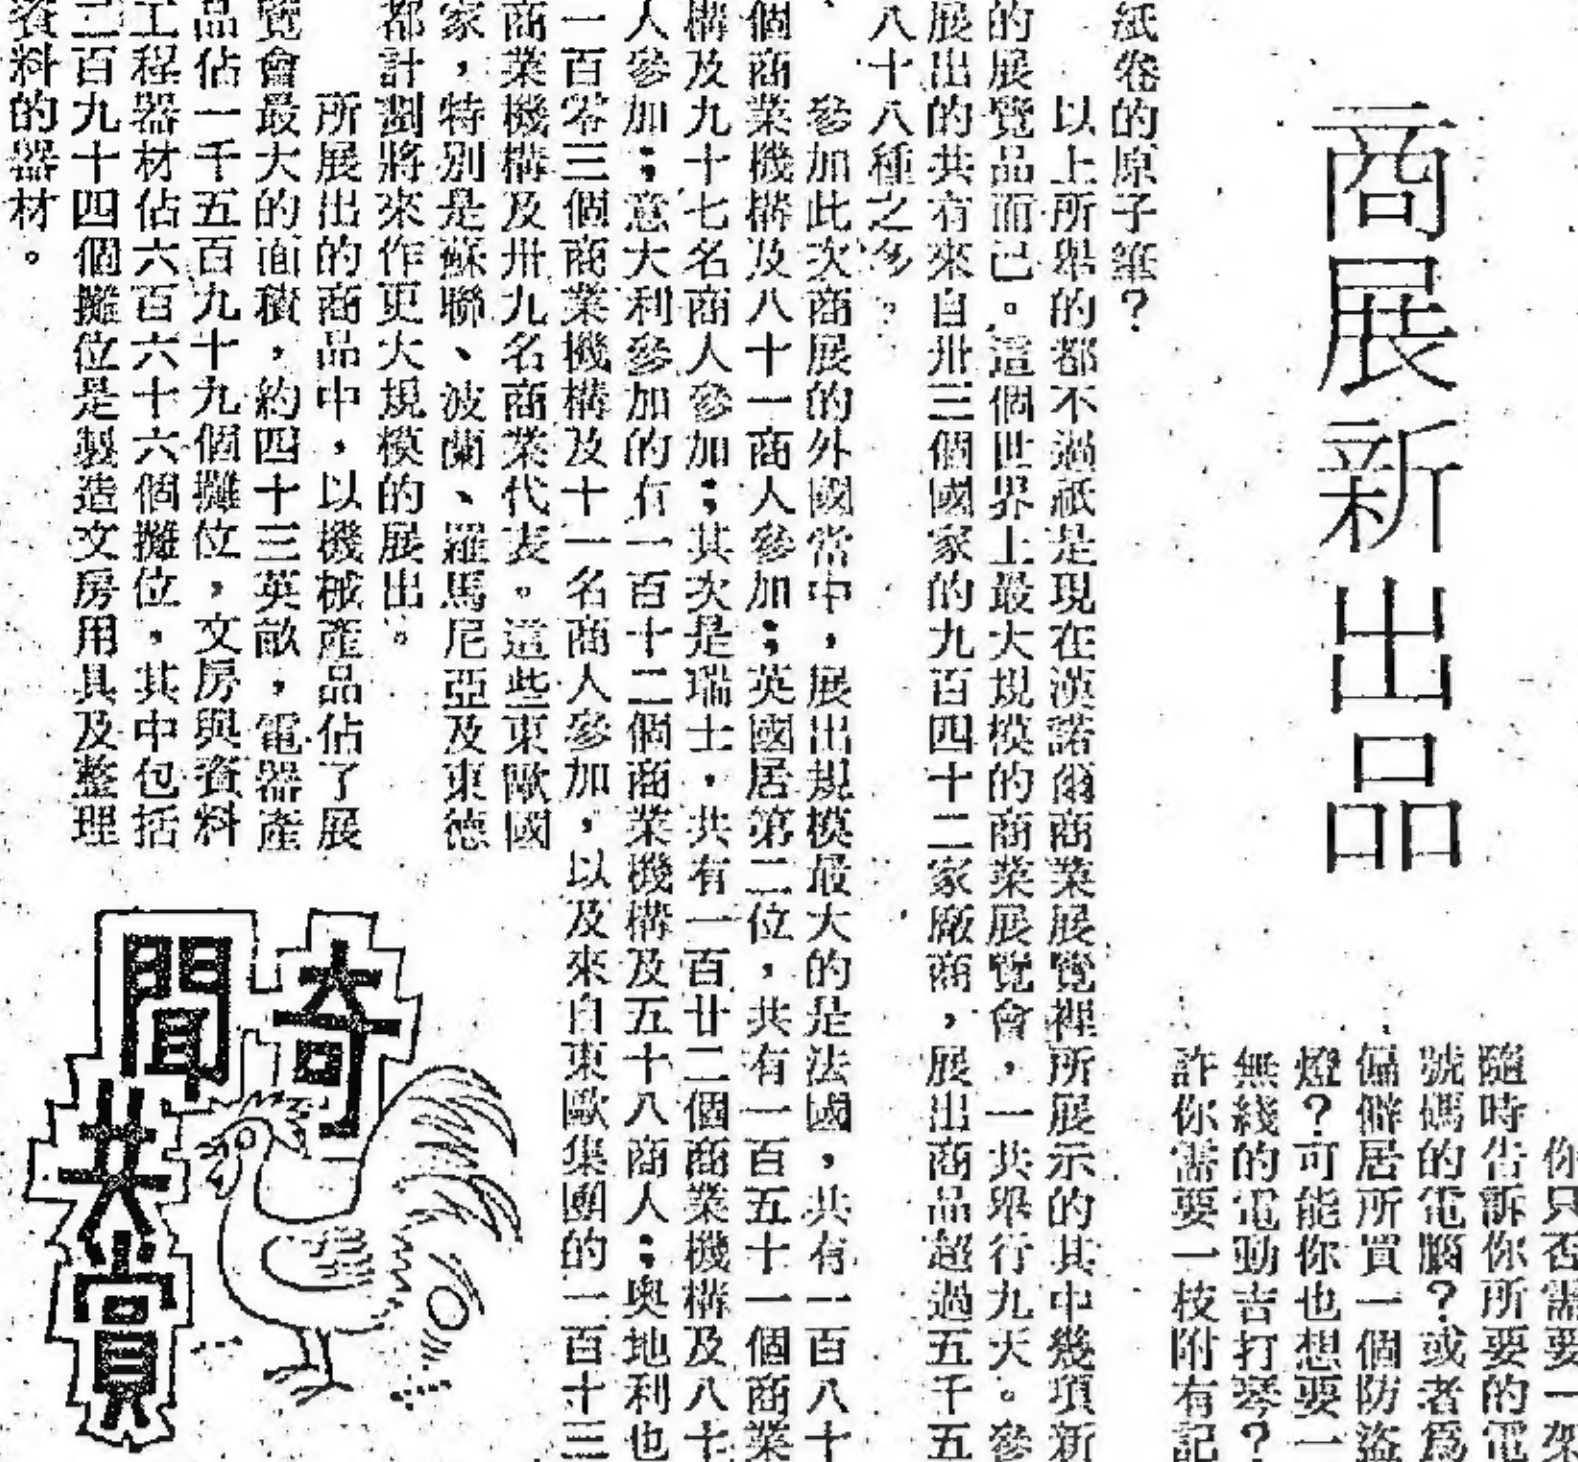 商展新出品
你只否需要一架
隨時告訴你所要的電
號碼的電腦?或者爲
偏僻居所買一個防盜
燈?可能你也想要一
無綫的電動吉打琴?
許你需要一枝附有記
紙卷的原子筆?
以上所舉的都不過祇是現在漢諾爾商業展覽裡所展示的其中幾項新
的展覽品而已。這個世界上最大規模的商業展覽會,一共舉行九天。參
展出的共有來自卅三個國家的九百四十二家廠商,展出商品超過五千五
八十八種之多。
參加此次商展的外國當中,展出規模最大的是法國,共有一百八十
個商業機構及八十一商人參加;英國居第二位,共有一百五十一個商業
構及九十七名商人參加;其次是瑞士,共有一百廿二個商業機構及八十
人參加;意大利參加的有一百十二個商業機構及五十八商人;奥地利也
一百零三個商業機構及十一名商人參加,以及來自東歐集團的一百十三
商業機構及卅九名商業代表。這些東歐國
家,特別是蘇聯、波蘭、羅馬尼亞及東德
都計劃將來作更大規模的展出。
所展出的商品中,以機械產品佔了展
覽會最大的面積,約四十三英畝,電器產
品佔一千五百九十九個攤位,文房與資料
工程器材佔六百六十六個攤位,其中包括
三百九十四個攤位是製造文房用具及整理
資料的器材。
奇聞共賞